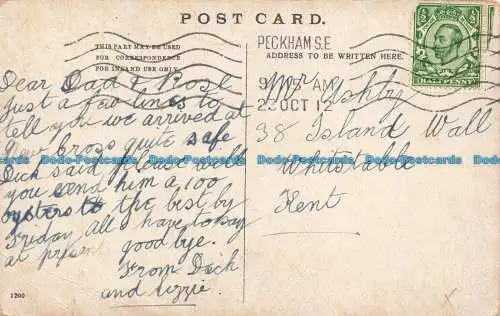 POST CARD.
THIS PART MAY BE USED
FOR CORRESPONDENCE
FOR INLAND USE ONLY.
ADDRESS TO BE WRITTEN HERE.
PECKHAM S.E
9. AM
23 OCT 12
HALFPENNY
Dear Dad & Rose
Just a few lines to
tell you we arrived at
New Cross quite safe
Dick said please will
you send him a 100
oysters the best by
Friday, all I have to say
at present good bye.
From Dick
and Lizzie.
Mr Ashby
38 Island Wall
Whitstable
Kent
1200
Dodo-Postcards Dodo-Postcards Dodo-Postcards Dodo-Postcards